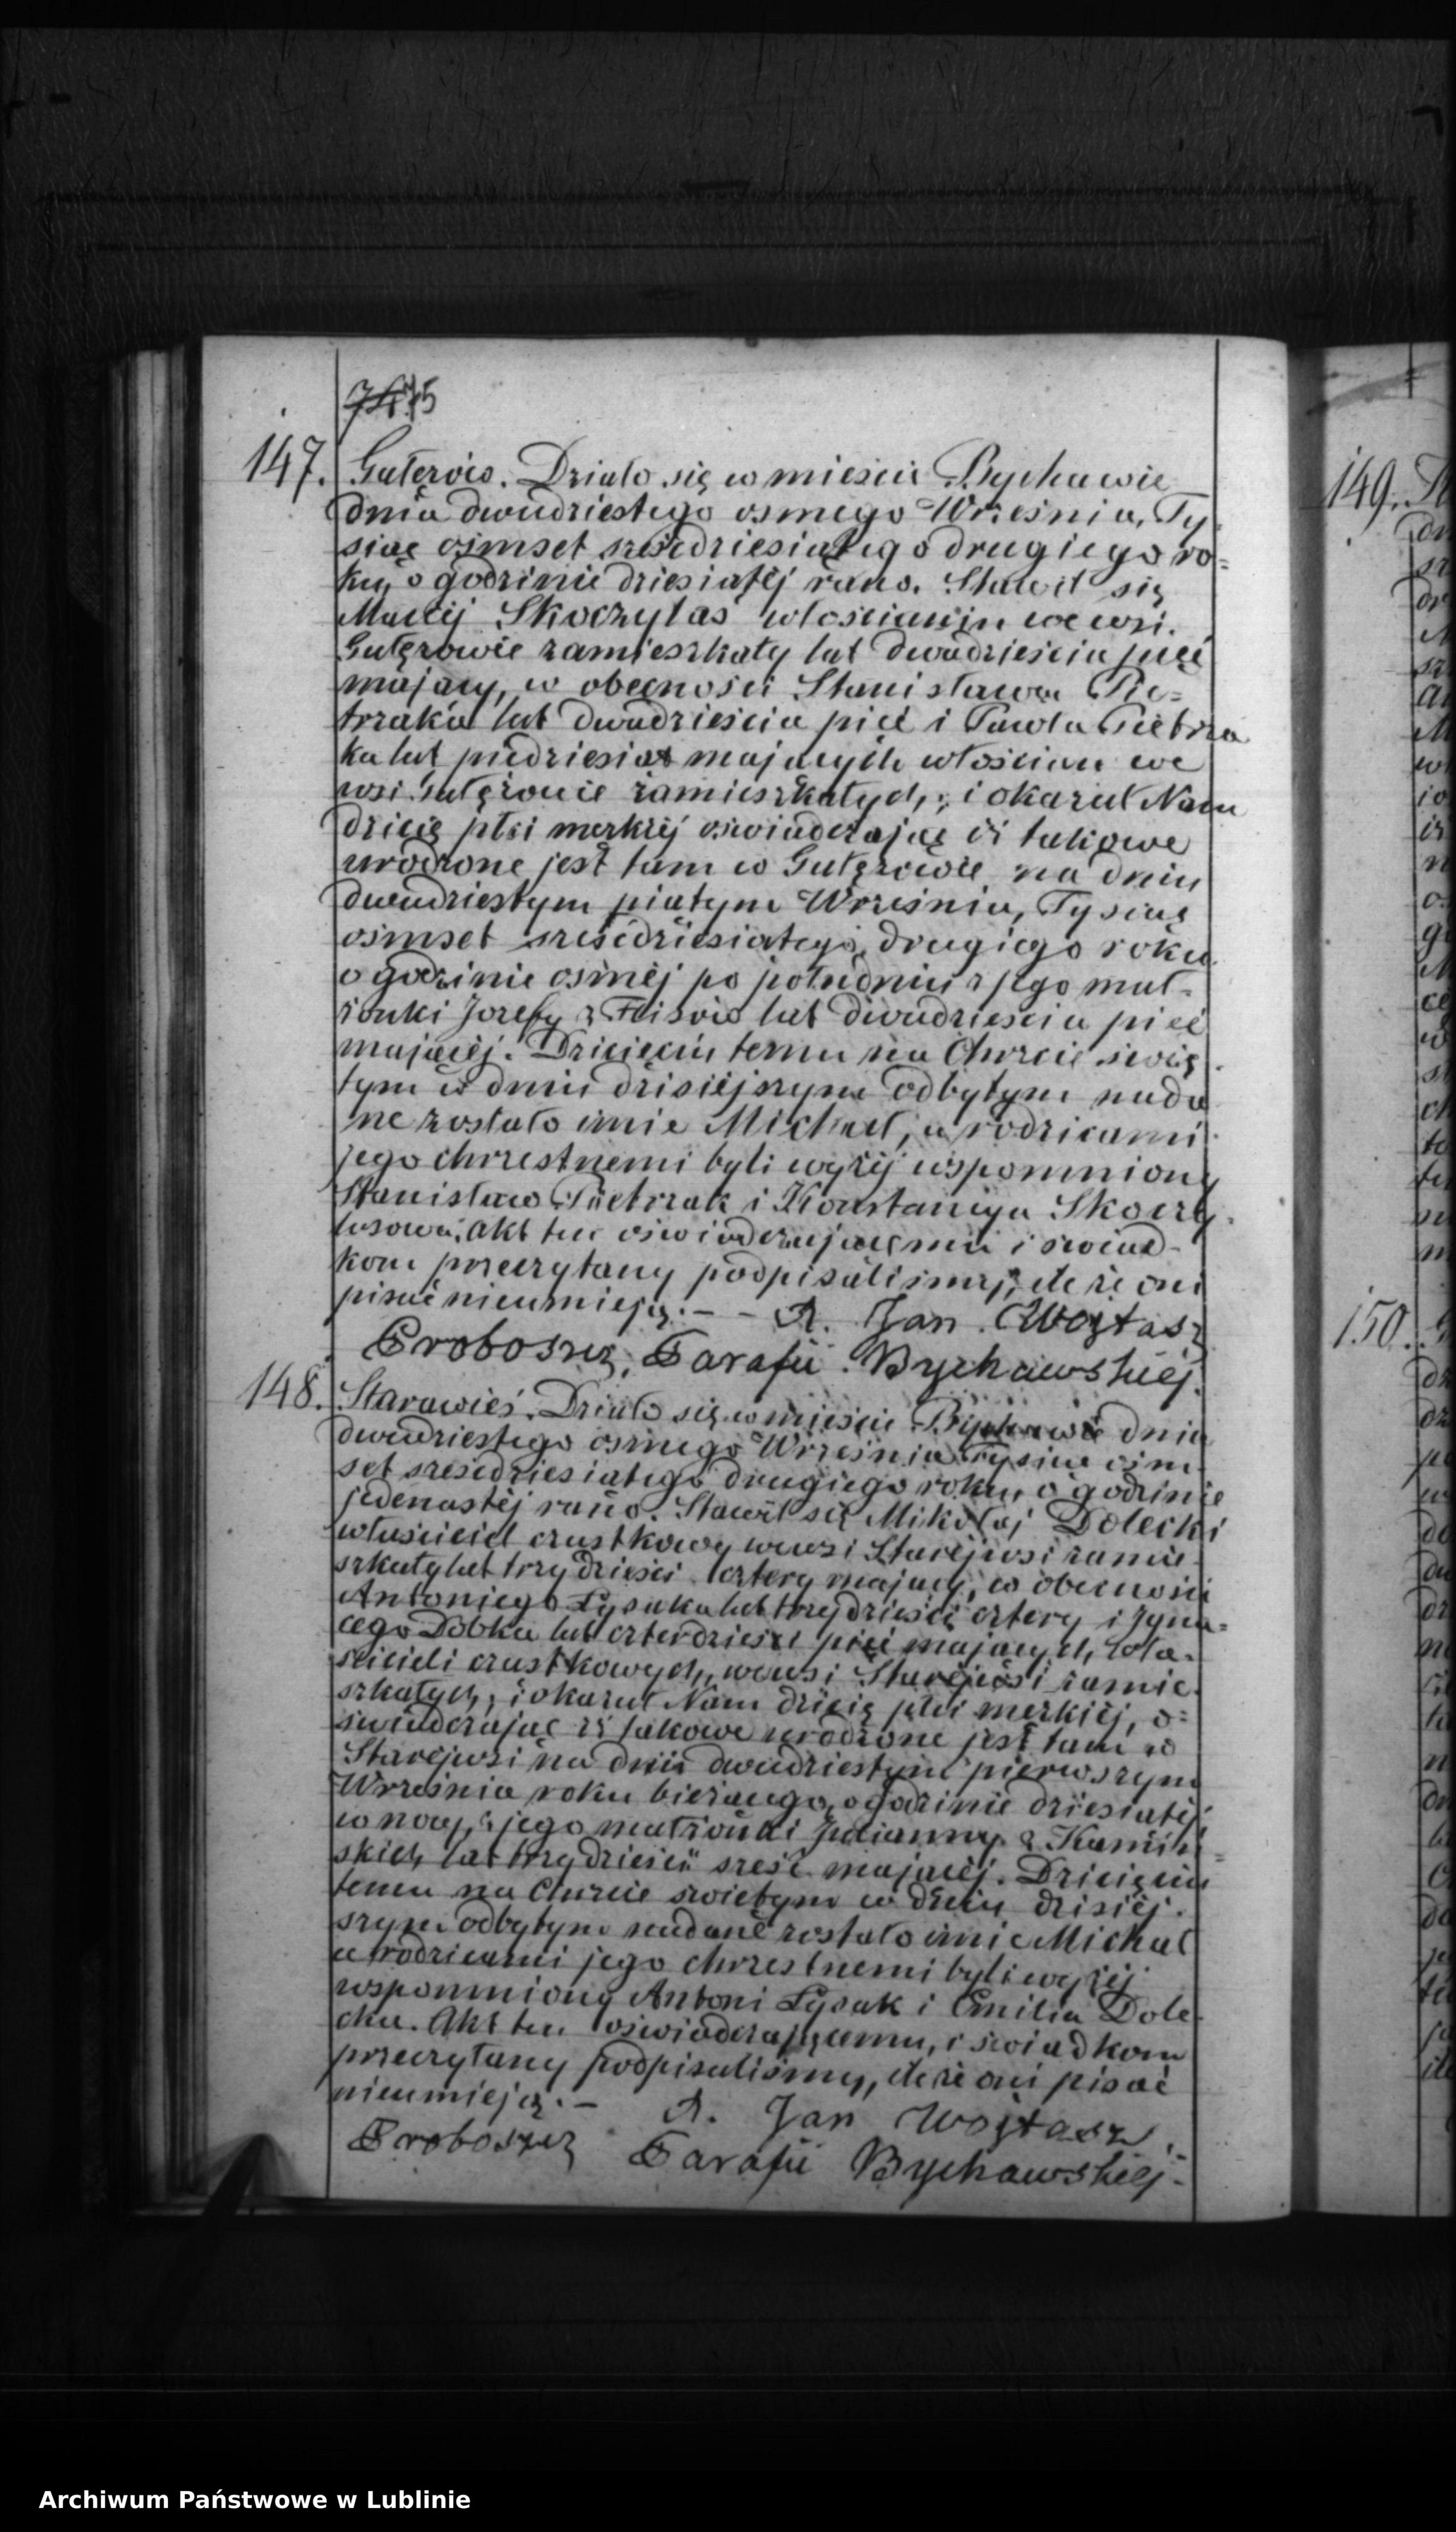 75
147. Gałęzów. Działo się w mieście Bychawie
dnia dwudziestego osmego Września, Ty-
siąc ośmset sześćdziesiątego drugiego ro=
ku, o godzinie dziesiątej rano. Stawił się
Maciej Skoczylas włościanin we wsi
Gałęzowie zamieszkały lat dwadzieścia pięć
mający, w obecności Stanisława Pie=
trzaka lat dwadzieścia pięć i Pawła Pietrza
ka lat piędziesiąt mających włościan we
wsi Gałęzowie zamieszkałych; i okazał Nam
dziecię płci męzkiéj oświadczając iż takowe
urodzone jest tam w Gałęzowie na dniu
dwudziestym piątym Września, Tysiąc
ośmset sześćdziesiątego drugiego roku
o godzinie osméj po południu z jego mał-
żonki Jozefy z lat dwadzieścia pięć
mającéj. Dziecięciu temu na Chrzcie świę-
tym w dniu dzisiejszym odbytym nada
ne zostało imie Michał, a rodzicami
jego chrzestnemi byli wyżéj wspomniony
Stanisław Pietrzak i Konstancya Skoczy-
lasowa; akt ten oświadczającemu i świad-
kom przeczytany podpisaliśmy; ile że oni
pisać nieumieją. — — X. Jan Wojtasz
Proboszcz Parafii Bychawskiéj.
148. Starawieś. Działo się w mieście Bychawie dnia
dwudziestego osmego Września Tysiąc ośm-
set sześćdziesiątego drugiego roku, o godzinie
jedenastéj rano. Stawił się Mikołaj Dolecki
właściciel cząstkowy wewsi Staréjwsi zamie-
szkały lat trzydzieści cztery mający, w obecności
Antoniego Łysaka lat trzydzieści cztery i Igna=
cego Dobka lat czterdzieści pięć mających, wła-
ścicieli cząstkowych, wewsi Staréjwsi zamie-
szkałych; i okazał Nam dziecię płci męzkiéj, o=
świadczając iż takowe urodzone jest tam w
Staréjwsi na dniu dwudziestym pierwszym
Września roku bieżącego, o godzinie dziesiątéj
w nocy, z jego małżonki Julianny z Kamiń=
skich lat trzydzieści sześć mającéj. Dziecięciu
temu na Chrzcie świetym w dniu dzisiéj-
szym odbytym nadane zostało imie Michał
a rodzicami jego chrzestnemi byli wyżéj
wspomniony Antoni Łysak i Emilia Dole-
cka. Akt ten oświadczającemu, i świadkom
przeczytany podpisaliśmy, ile że oni pisać
nieumieją. — X. Jan Wojtasz,
Proboszcz Parafii Bychawskiéj-
149.
150.
Archiwum Państwowe w Lublinie